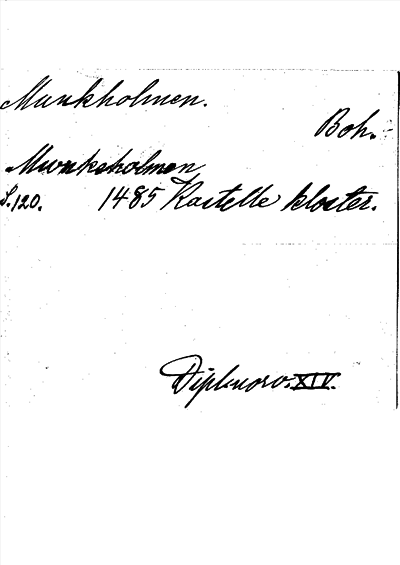 Munkholmen.
Boh.
Munkeholmen
S.120. 1485 Kastelle kloster.
Dipl. norv. XIV.